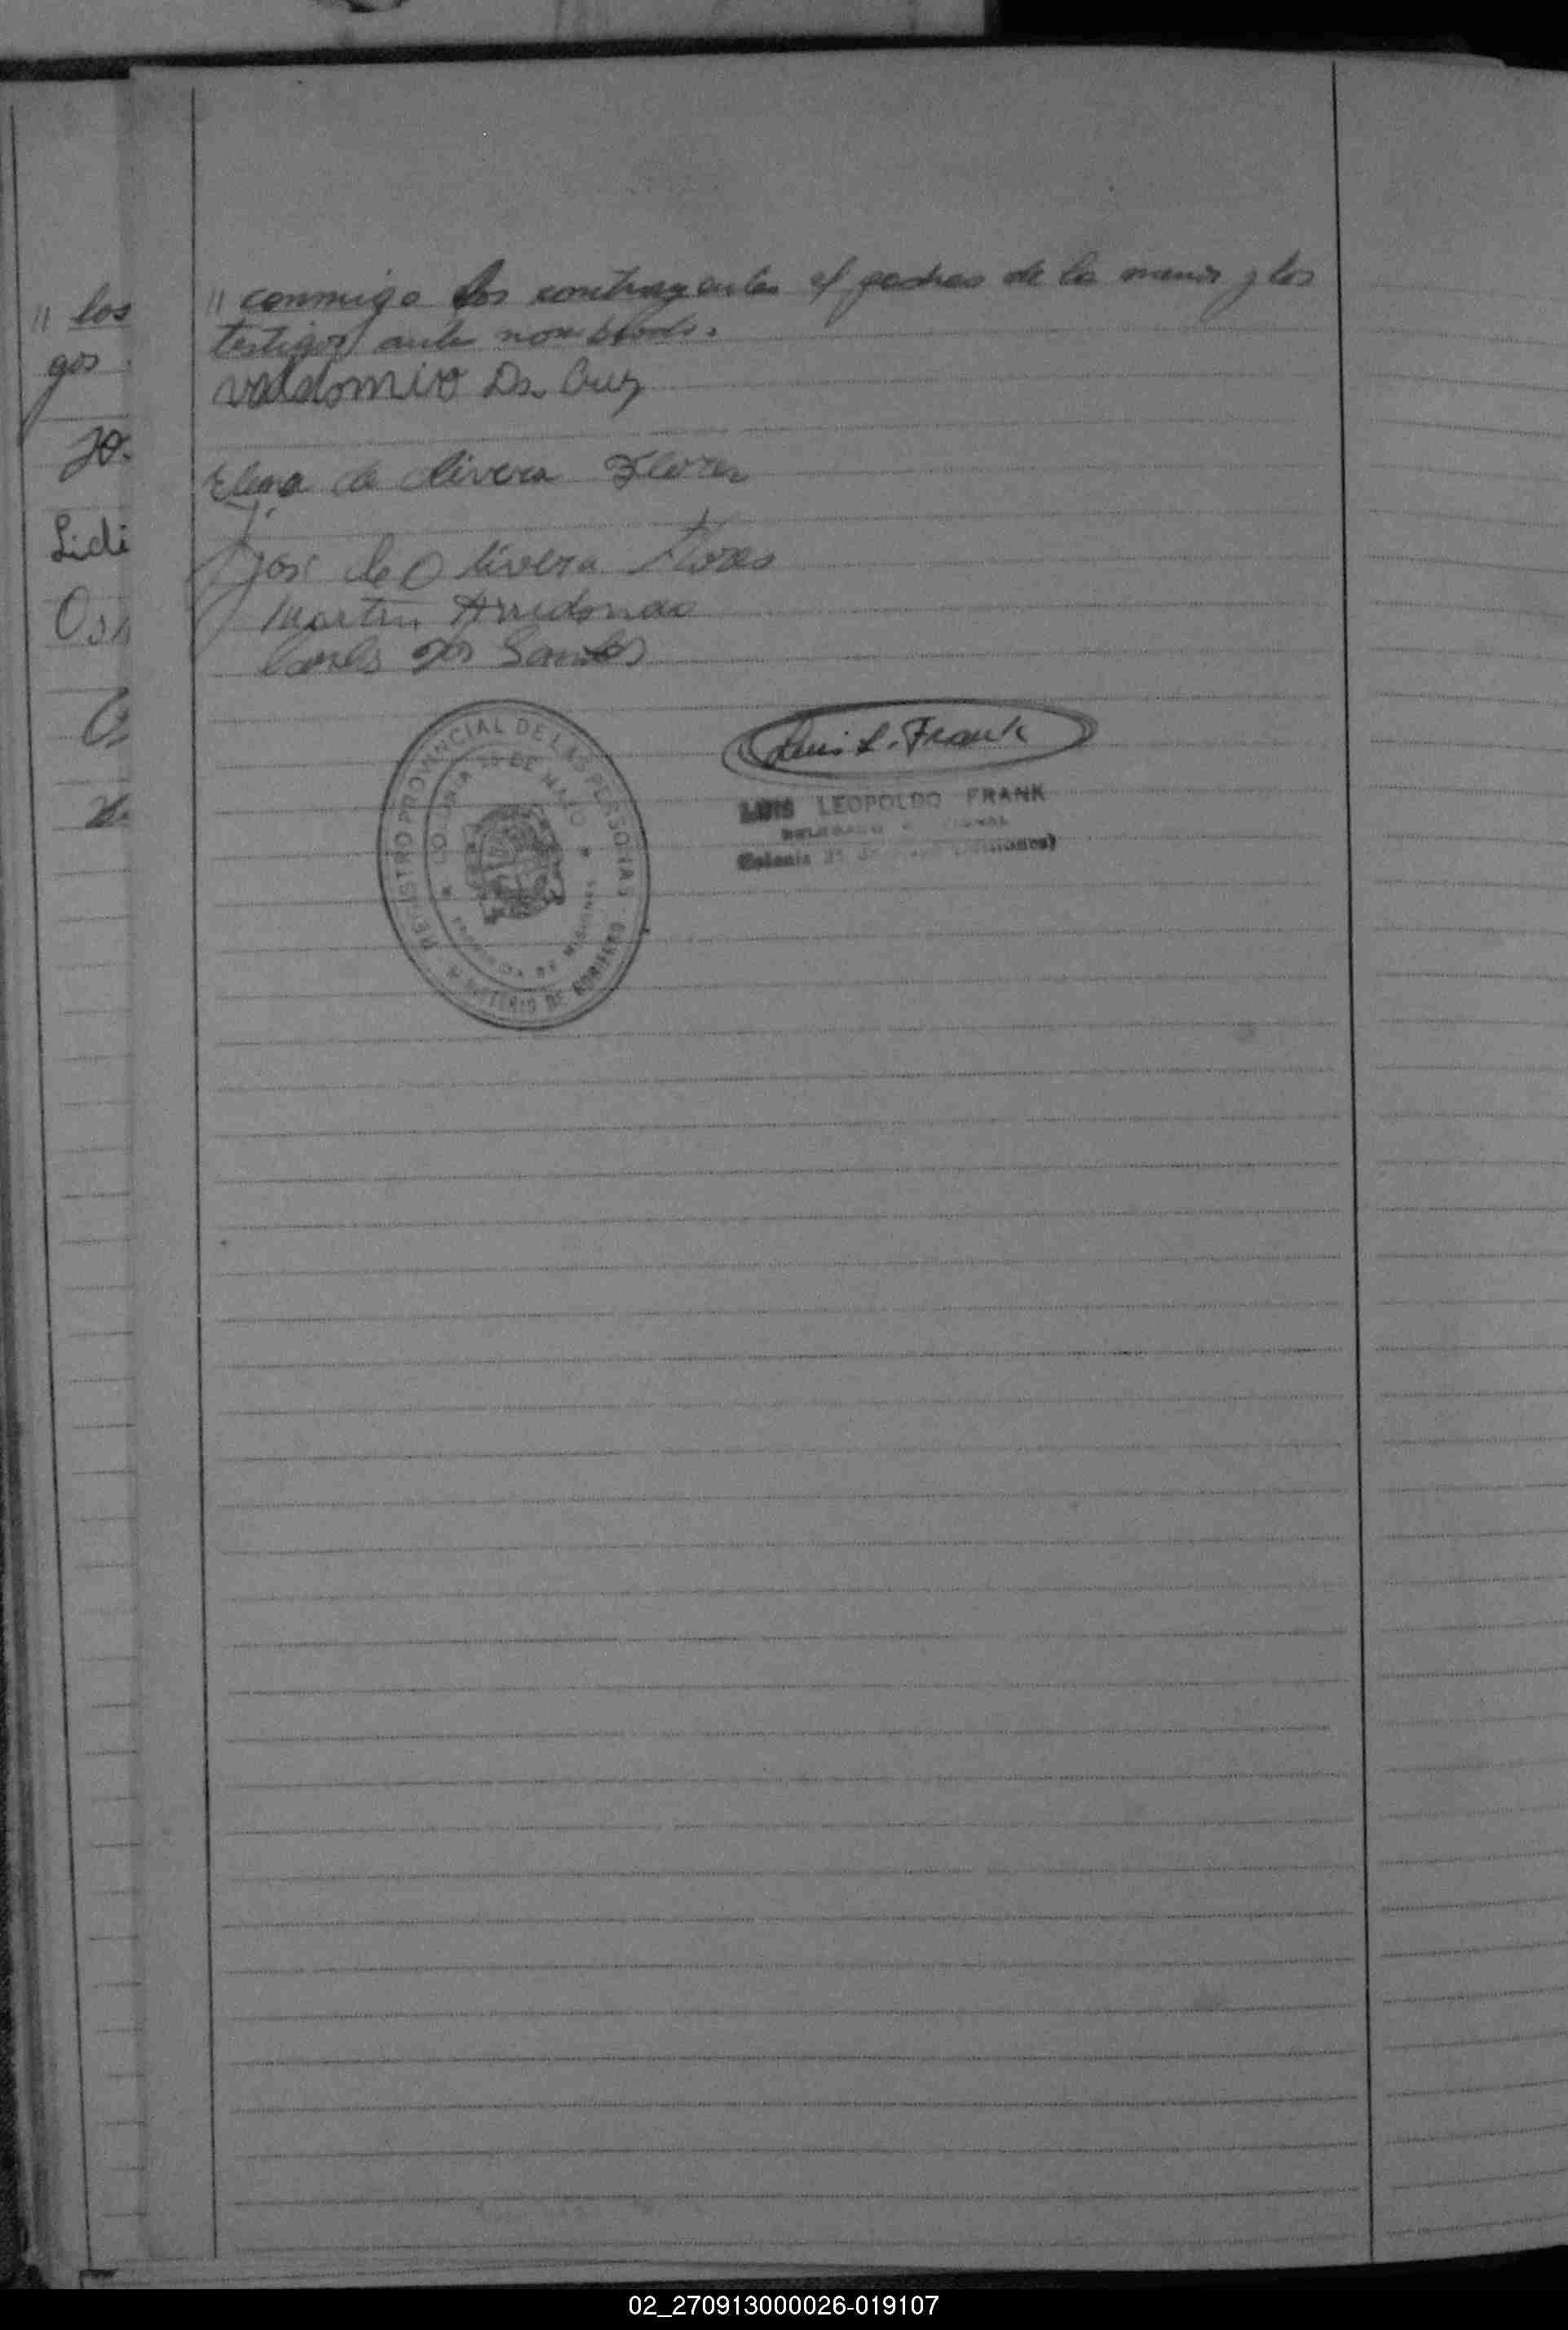 // los
gos
Lidi
// conmigo los contrayentes el padre de la menor y los
testigos ante nombrados.
valdomiro Da Cruz
Elena de Olivera Flores
José de Olivera Flores
Martin Arridondo
Carlos Dos Santos
REGISTRO PROVINCIAL DE LAS PERSONAS
COLONIA 25 DE MAYO
PROVINCIA DE MISIONES
MINISTERIO DE GOBIERNO
Luis L. Frank
LUIS LEOPOLDO FRANK
DELEGADO
Colonia 25 de Mayo (Misiones)
02_270913000026-019107